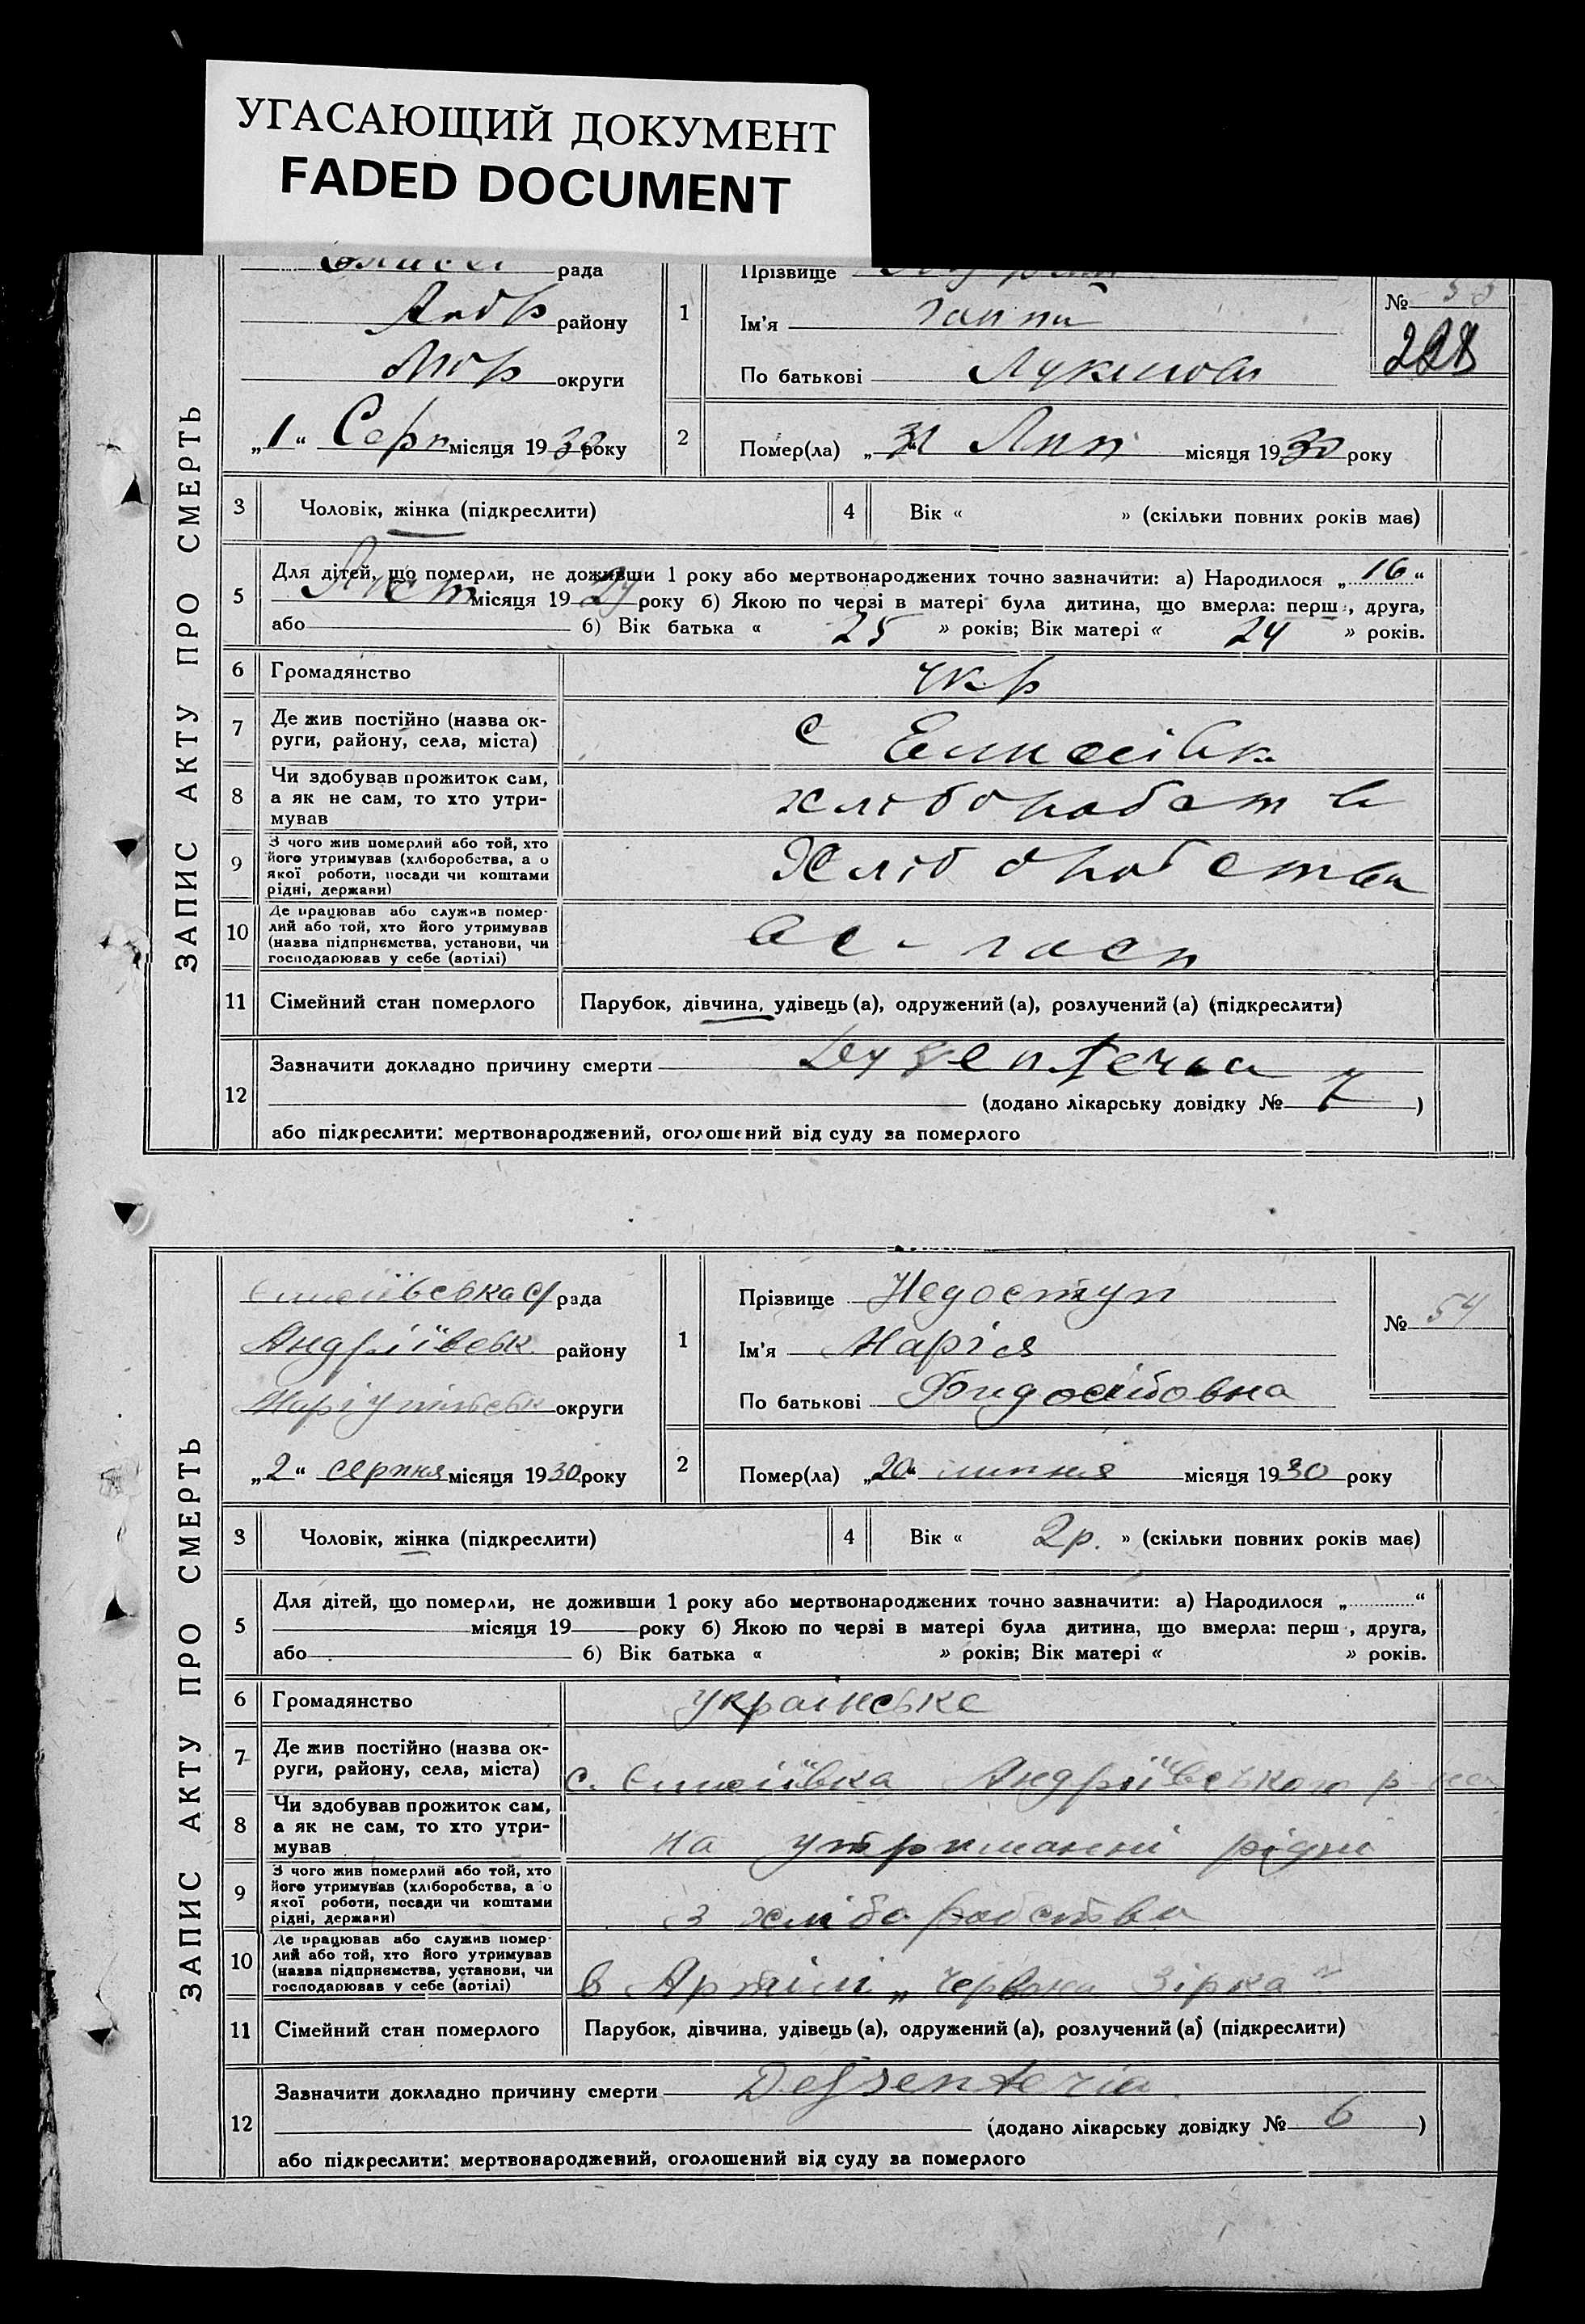 УГАСАЮЩИЙ ДОКУМЕНТ
FADED DOCUMENT
ЗАПИС АКТУ ПРО СМЕРТЬ
рада
Андр району
Мар округи
„1“ Серп місяця 1930 року
1
Прізвище
Ім'я Ганна
По батькові
№
228
2
Помер(ла) „31“ Лип місяця 1930 року
3
Чоловік, жінка (підкреслити)
4
Вік « » (скільки повних років має)
5
Для дітей, що померли, не доживши 1 року або мертвонароджених точно зазначити: а) Народилося „16“
Лист місяця 1929 року б) Якою по черзі в матері була дитина, що вмерла: перш , друга,
або 6) Вік батька « 25 » років; Вік матері « 24 » років.
6
Громадянство
укр
7
Де жив постійно (назва ок-
руги, району, села, міста)
с
8
Чи здобував прожиток сам,
а як не сам, то хто утри-
мував
хліборобств
9
З чого жив померлий або той, хто
його утримував (хліборобства, а о
якої роботи, посади чи коштами
рідні, держави)
Хліборобства
10
Де працював або служив помер-
лий або той, хто його утримував
(назва підприємства, установи, чи
господарював у себе (артілі)
11
Сімейний стан померлого
Парубок, дівчина, удівець (а), одружений (а), розлучений (а) (підкреслити)
12
Зазначити докладно причину смерти
(додано лікарську довідку № 7 )
або підкреслити: мертвонароджений, оголошений від суду за померлого
ЗАПИС АКТУ ПРО СМЕРТЬ
рада
Андріївськ району
Маріупільськ округи
„2“ серпня місяця 1930 року
1
Прізвище Недоступ
Ім'я Марія
По батькові
№ 54
2
Помер(ла) „20“ липня місяця 1930 року
3
Чоловік, жінка (підкреслити)
4
Вік « 2р. » (скільки повних років має)
5
Для дітей, що померли, не доживши 1 року або мертвонароджених точно зазначити: а) Народилося „ “
місяця 19 року б) Якою по черзі в матері була дитина, що вмерла: перш , друга,
або 6) Вік батька « » років; Вік матері « » років.
6
Громадянство
українське
7
Де жив постійно (назва ок-
руги, району, села, міста)
с. Андріївського р
8
Чи здобував прожиток сам,
а як не сам, то хто утри-
мував
на утриманні рідні
9
З чого жив померлий або той, хто
його утримував (хліборобства, а о
якої роботи, посади чи коштами
рідні, держави)
з хліборобства
10
Де працював або служив помер-
лий або той, хто його утримував
(назва підприємства, установи, чи
господарював у себе (артілі)
в Артілі „Червона Зірка“
11
Сімейний стан померлого
Парубок, дівчина, удівець (а), одружений (а), розлучений (а) (підкреслити)
12
Зазначити докладно причину смерти
(додано лікарську довідку № 6 )
або підкреслити: мертвонароджений, оголошений від суду за померлого